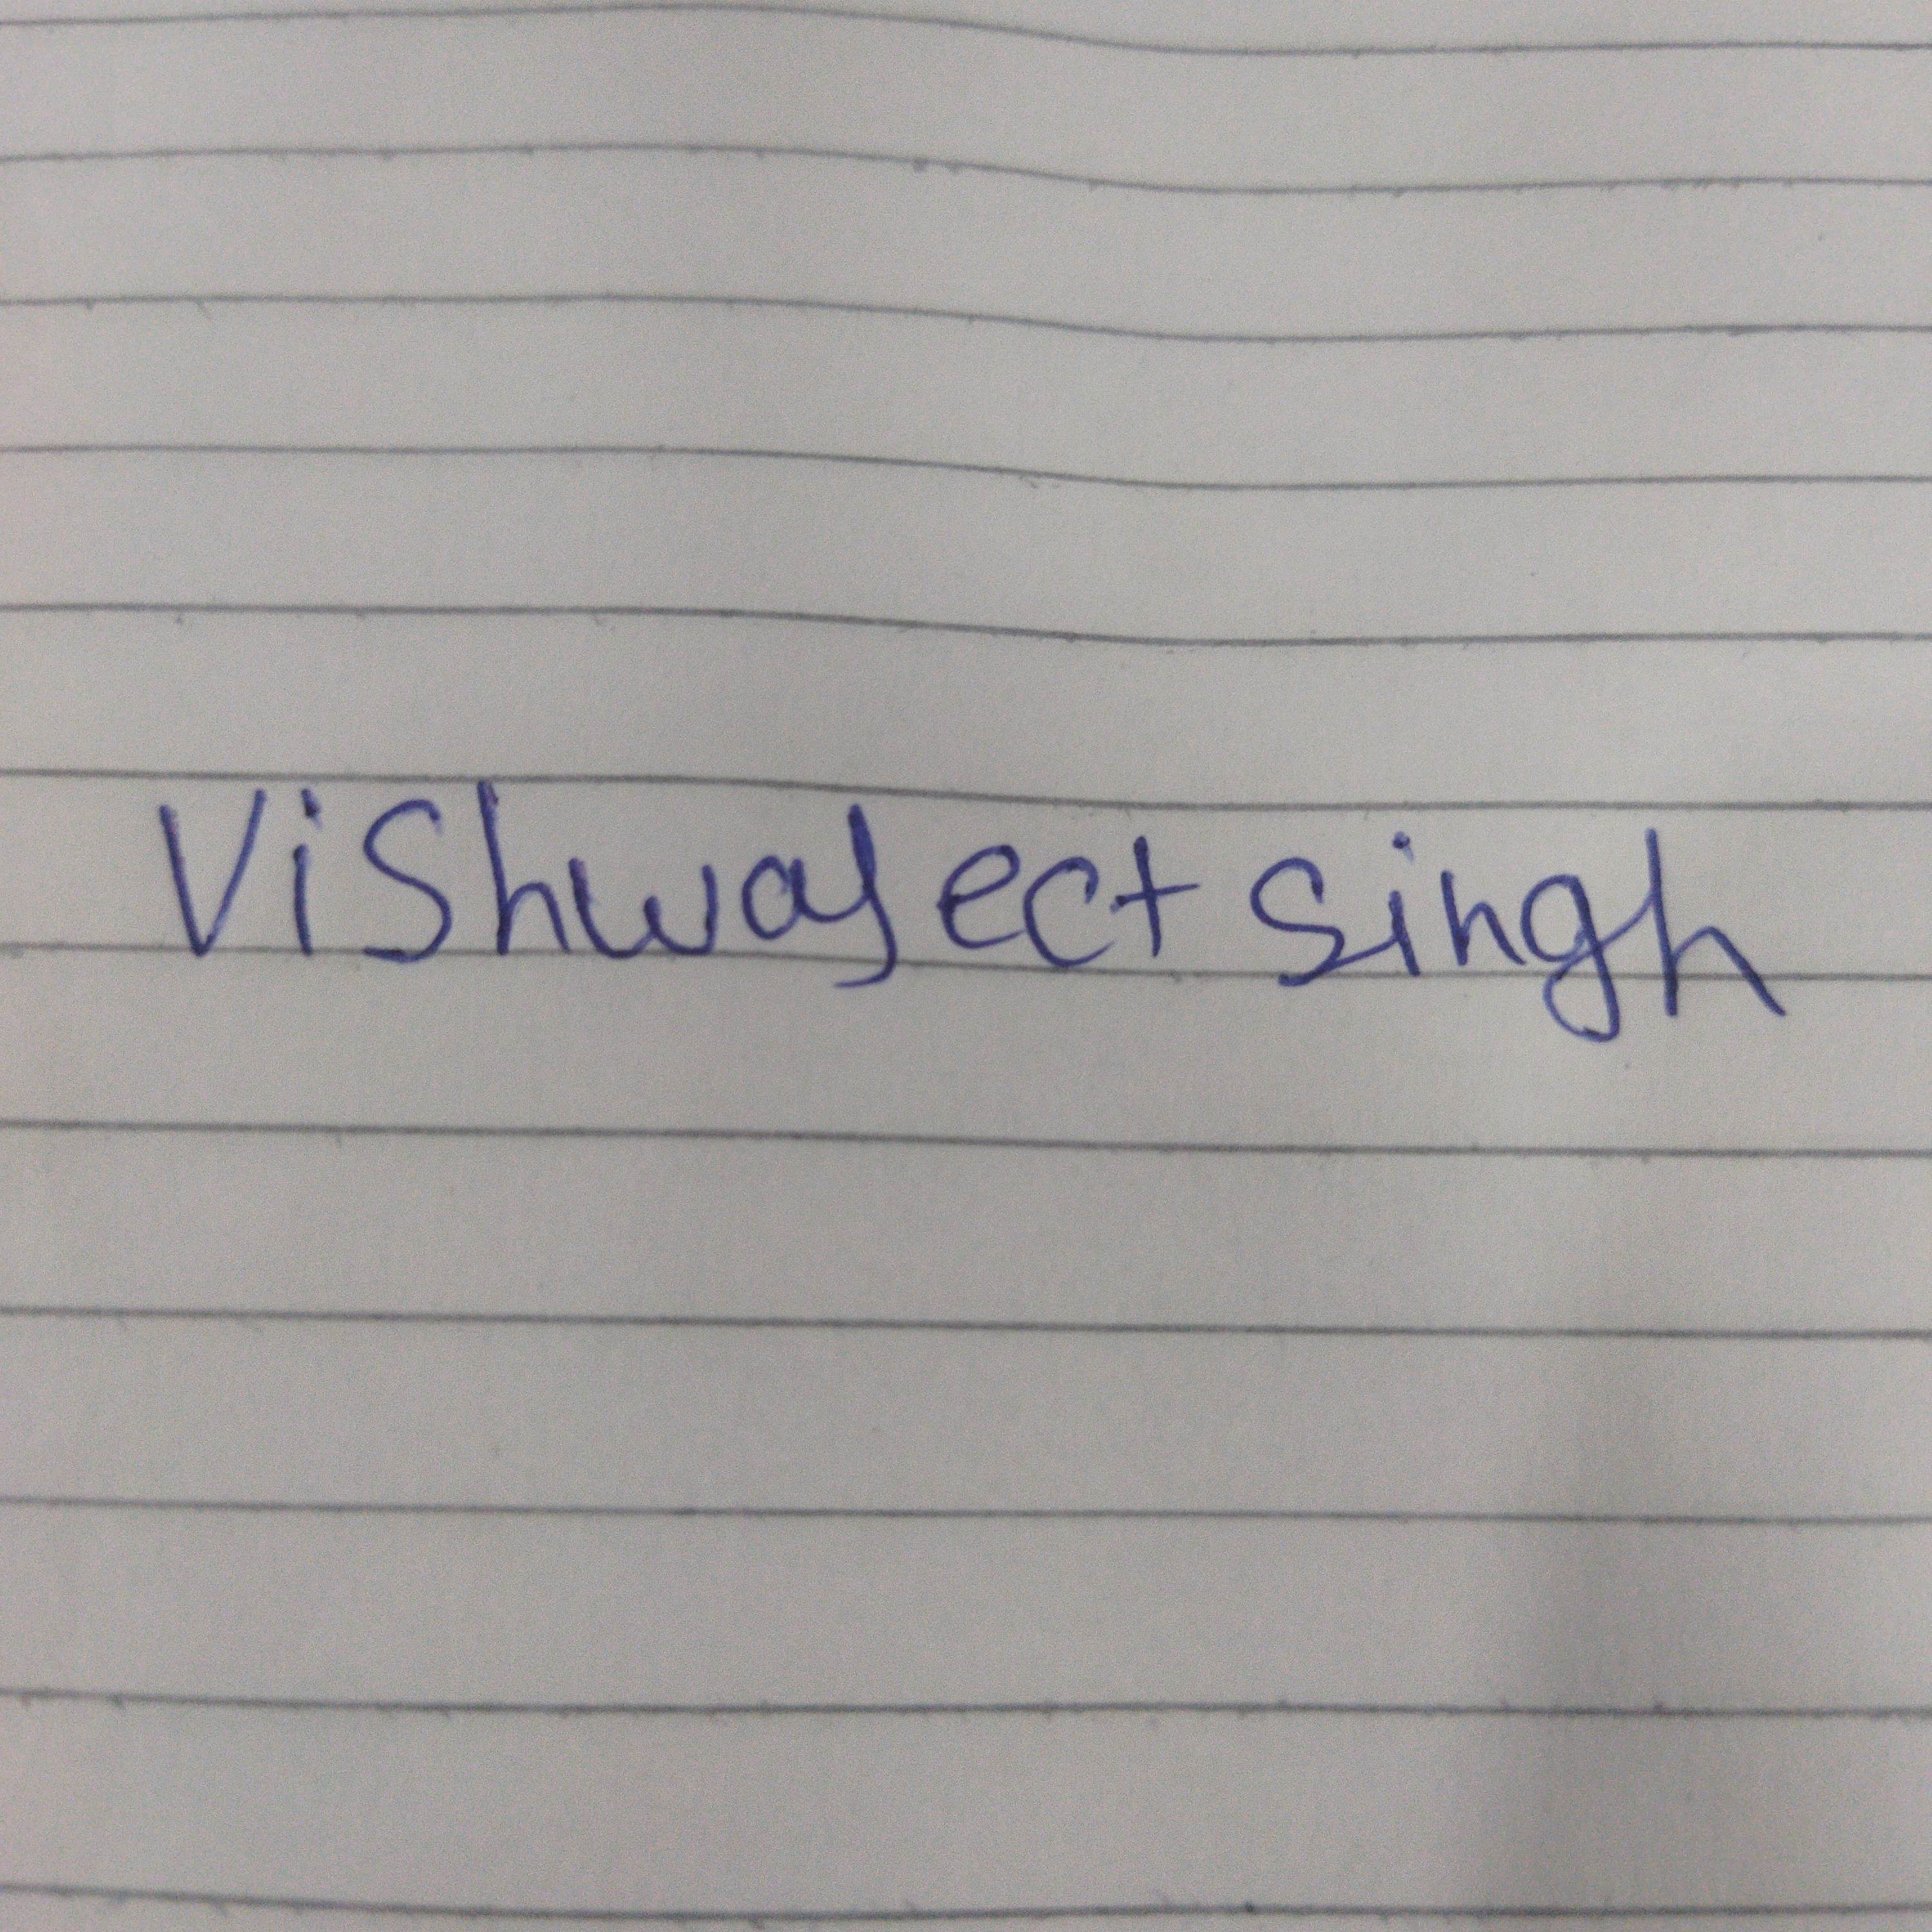 Vishwaject singh